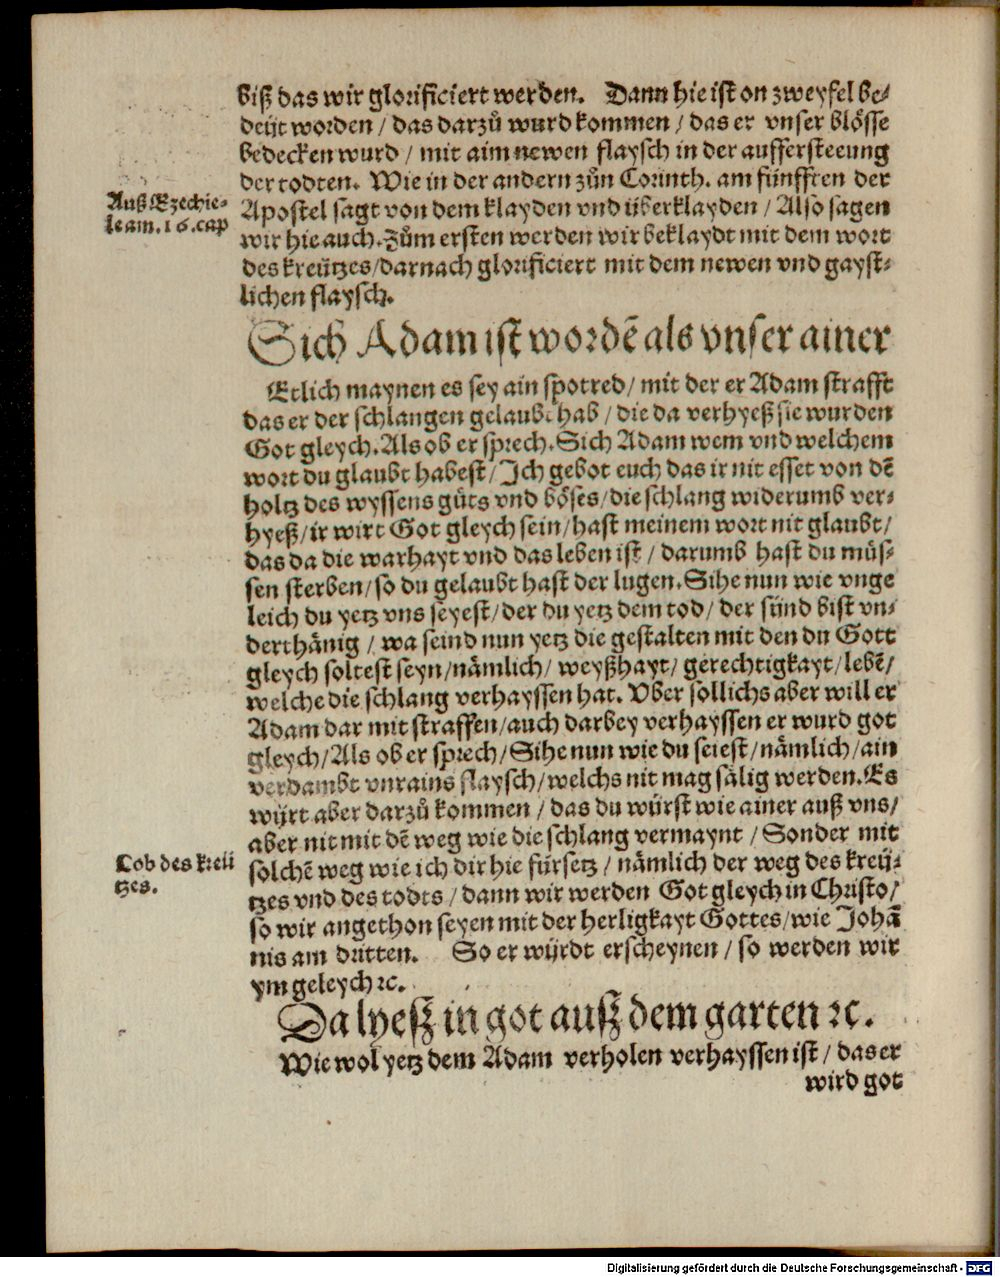 biß das wir glorificiert werden. Dann hie ist on zweyfel be⸗
deüt worden / das darzů wurd kommen / das er vnser blösse
bedecken wurd / mit aim newen flaysch in der auffersteeung
der todten. Wie in der andern zůn Corinth. am fünfften der
Auß Ezechie⸗
le am. 16. cap
Apostel sagt von dem klayden vnd überklayden / Also sagen
wir hie auch. Zům ersten werden wir beklaydt mit dem wort
des kreützes / darnach glorificiert mit dem newen vnd gayst⸗
lichen flaysch.
Sich Adam ist wordē als vnser ainer
Etlich maynen es sey ain spotred / mit der er Adam strafft
das er der schlangen gelaubt hab / die da verhyeß sie wurden
Got gleych. Als ob er sprech. Sich Adam wem vnd welchem
wort du glaubt habest / Ich gebot euch das ir nit esset von dē
holtz des wyssens gůts vnd böses / die schlang widerumb ver⸗
hyeß / ir wirt Got gleych sein / hast meinem wort nit glaubt /
das da die warhayt vnd das leben ist / darumb hast du müs⸗
sen sterben / so du gelaubt hast der lugen. Sihe nun wie vnge
leich du yetz vns seyest / der du yetz dem tod / der sünd bist vn⸗
derthänig / wa seind nun yetz die gestalten mit den du Gott
gleych soltest seyn / nämlich / weyßhayt / gerechtigkayt / lebē /
welche die schlang verhayssen hat. Vber sollichs aber will er
Adam dar mit straffen / auch darbey verhayssen er wurd got
gleych / Als ob er sprech / Sihe nun wie du seiest / nämlich / ain
verdambt vnrains flaysch / welchs nit mag sälig werden. Es
würt aber darzů kommen / das du würst wie ainer auß vns /
aber nit mit dē weg wie die schlang vermaynt / Sonder mit
Lob des kreü
tzes.
solchē weg wie ich dir hie fürsetz / nämlich der weg des kreü⸗
tzes vnd des todts / dann wir werden Got gleych in Christo /
so wir angethon seyen mit der herligkayt Gottes / wie Johā
nis am dritten. So er würdt erscheynen / so werden wir
ym geleych ꝛc.
Da lyeß in got auß dem garten ꝛc.
Wie wol yetz dem Adam verholen verhayssen ist / das er
wird got
Digitalisierung gefördert durch die Deutsche Forschungsgemeinschaft - DFG